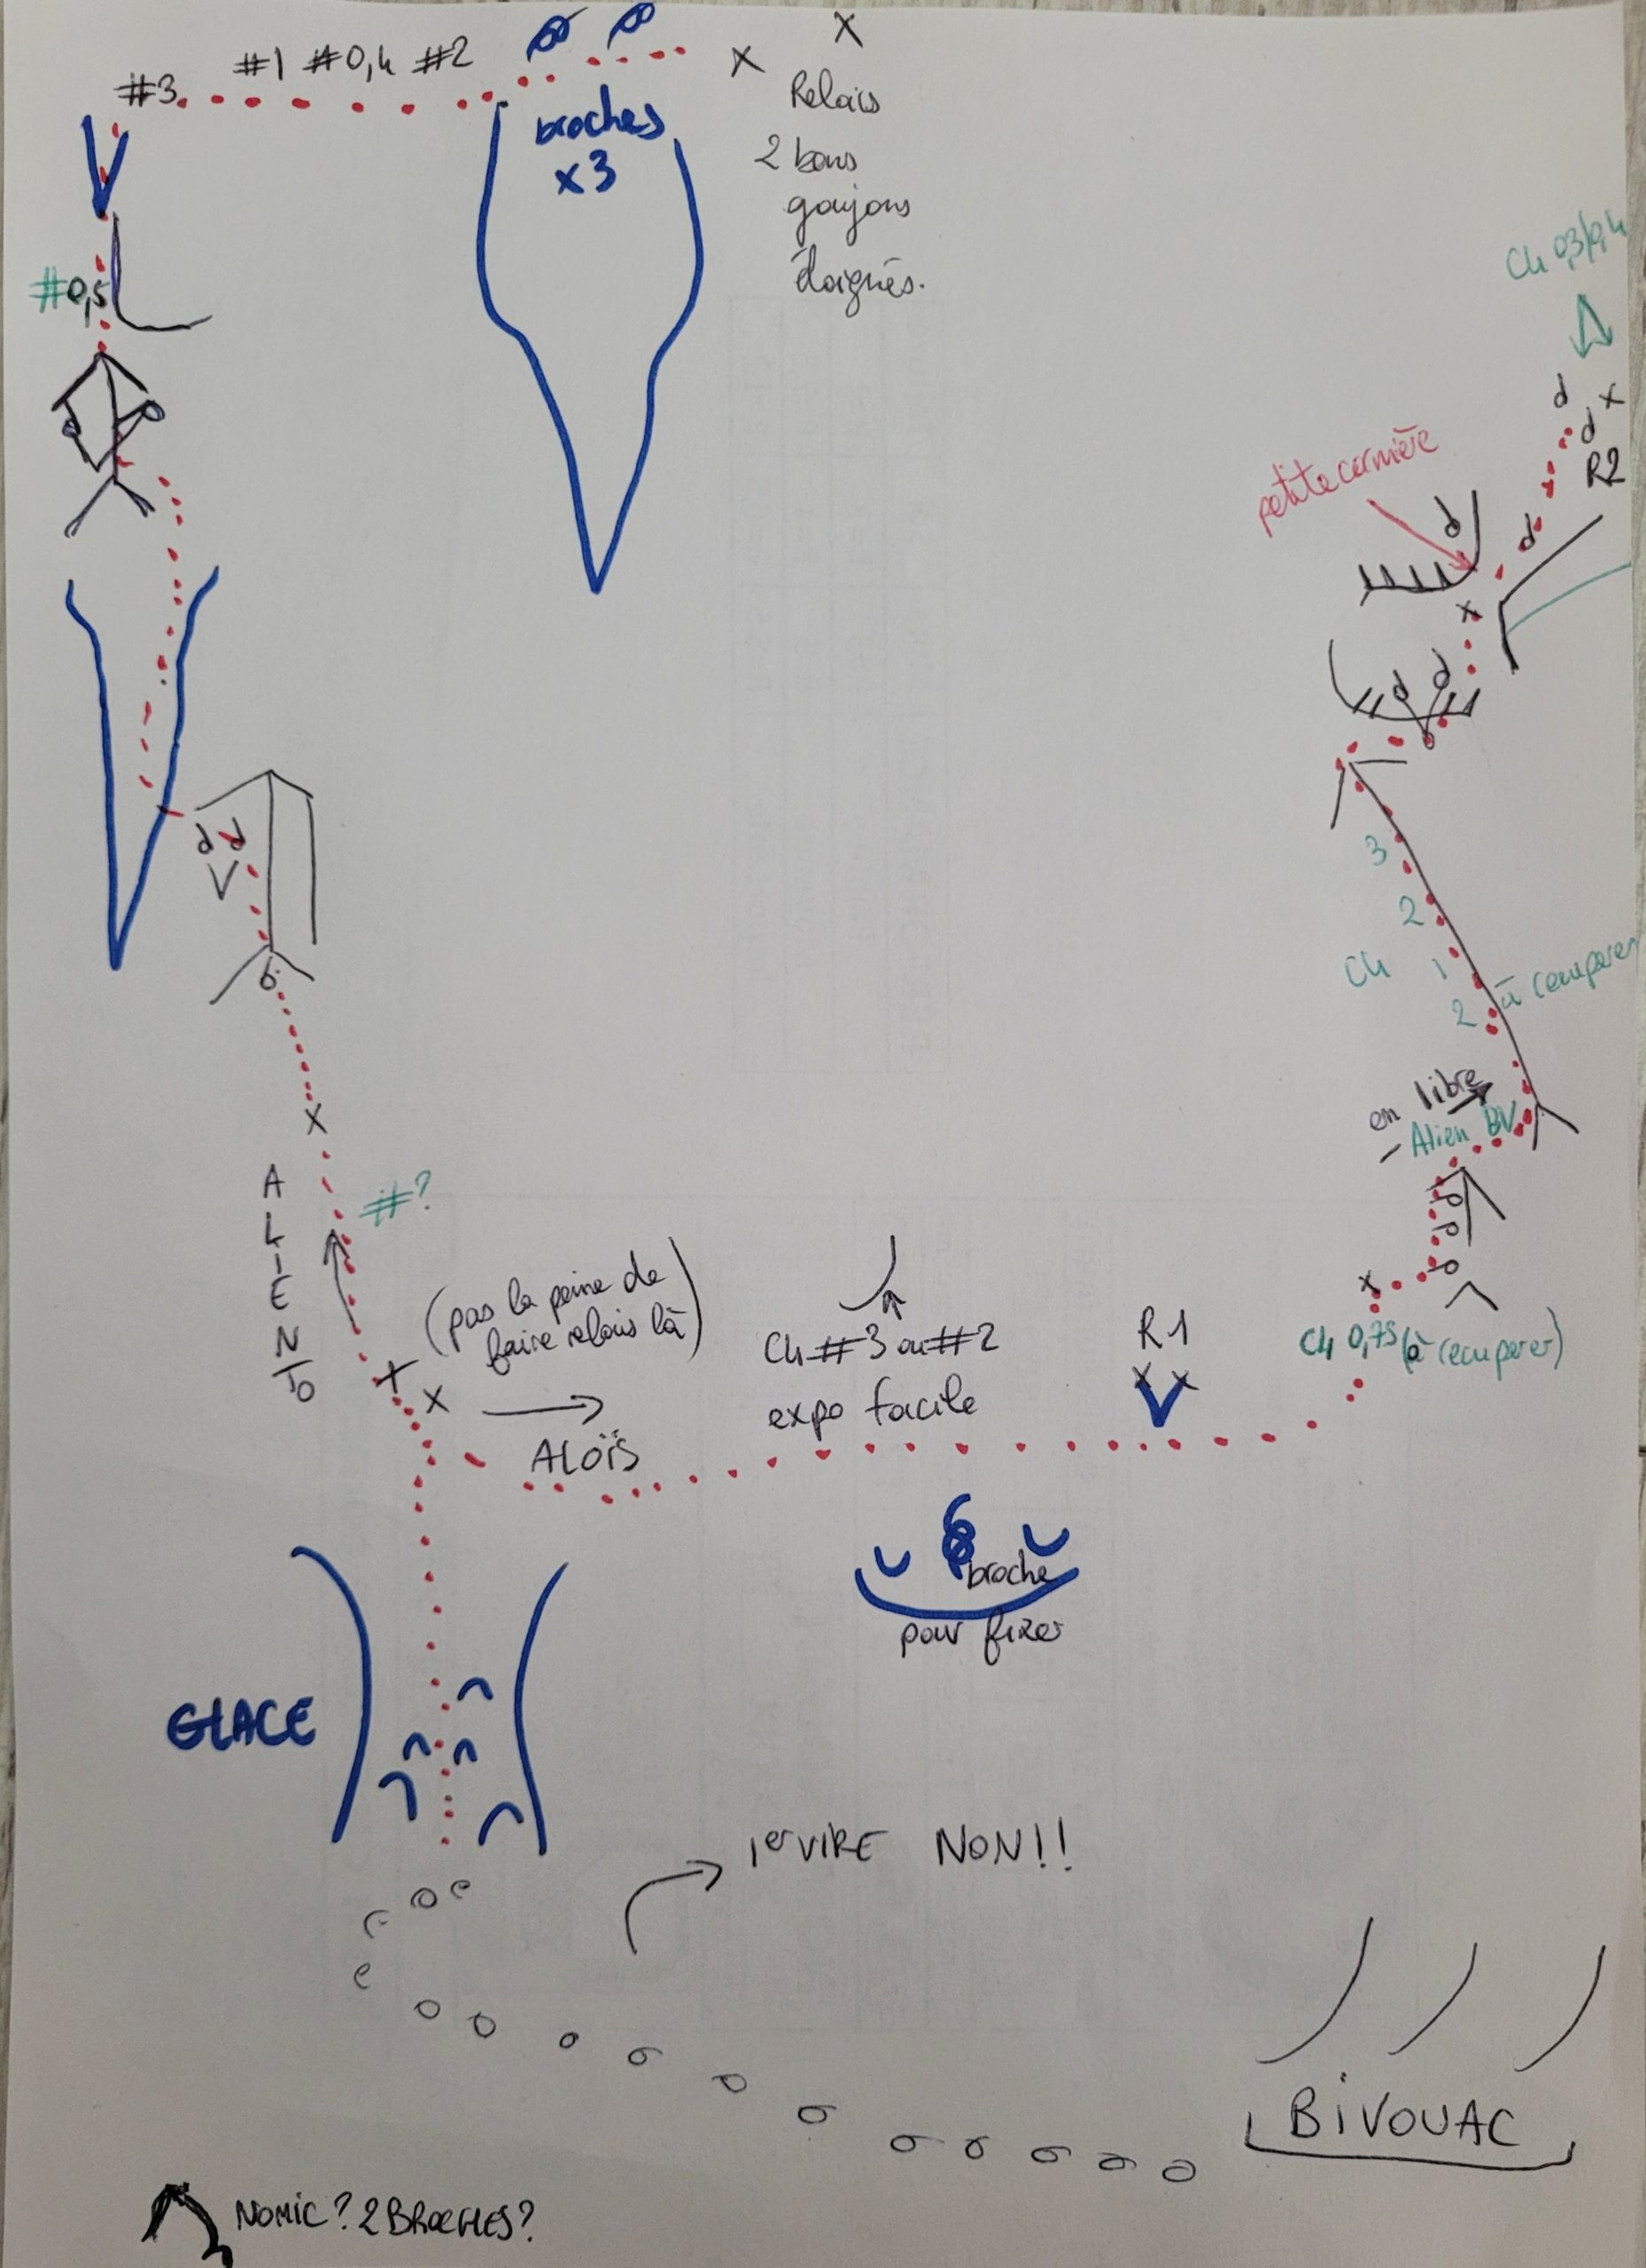 #3
#1 #0,4 #2
broches
x3
Relais
2 bons
goujons
éloignés.
#0,5
Ch 0,3/0,4
R2
petite cornière
3
2
Ch 1
2 à recuperer
en libre
Alien BV
ALIENTO
#?
(pas la peine de
faire relais là)
ALOÏS
Ch #3 ou #2
expo facile
R1
Ch 0,75 (à recuperer)
broche
pour fixer
GLACE
1er VIRE NON!!
BIVOUAC
NOMIC? 2 BROCHES?